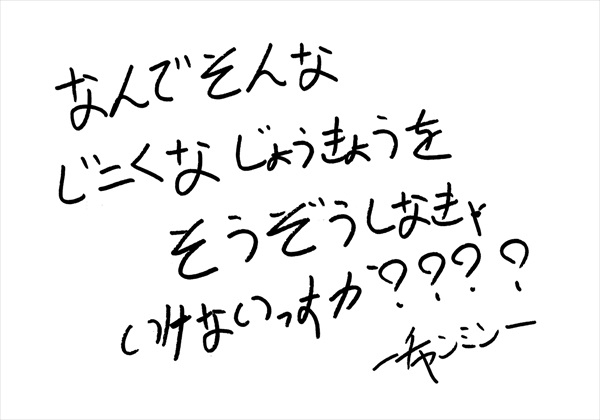 なんでそんな
じニくな じょうきょうを
そうぞうしなきゃ
いけないっすか？？？？
ーチャンミンー